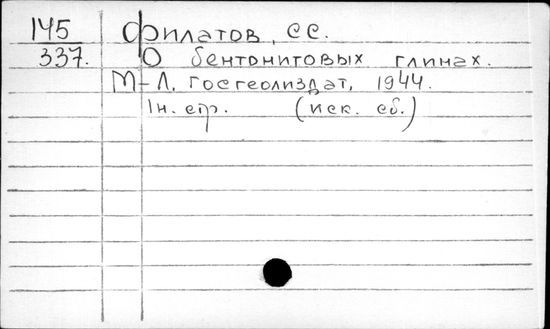 145 Филатов, С.С.
337. О бентонитовых глинах.
М-Л. Госгеолиздат, 1944.
Iн. стр. (иск. сб.)